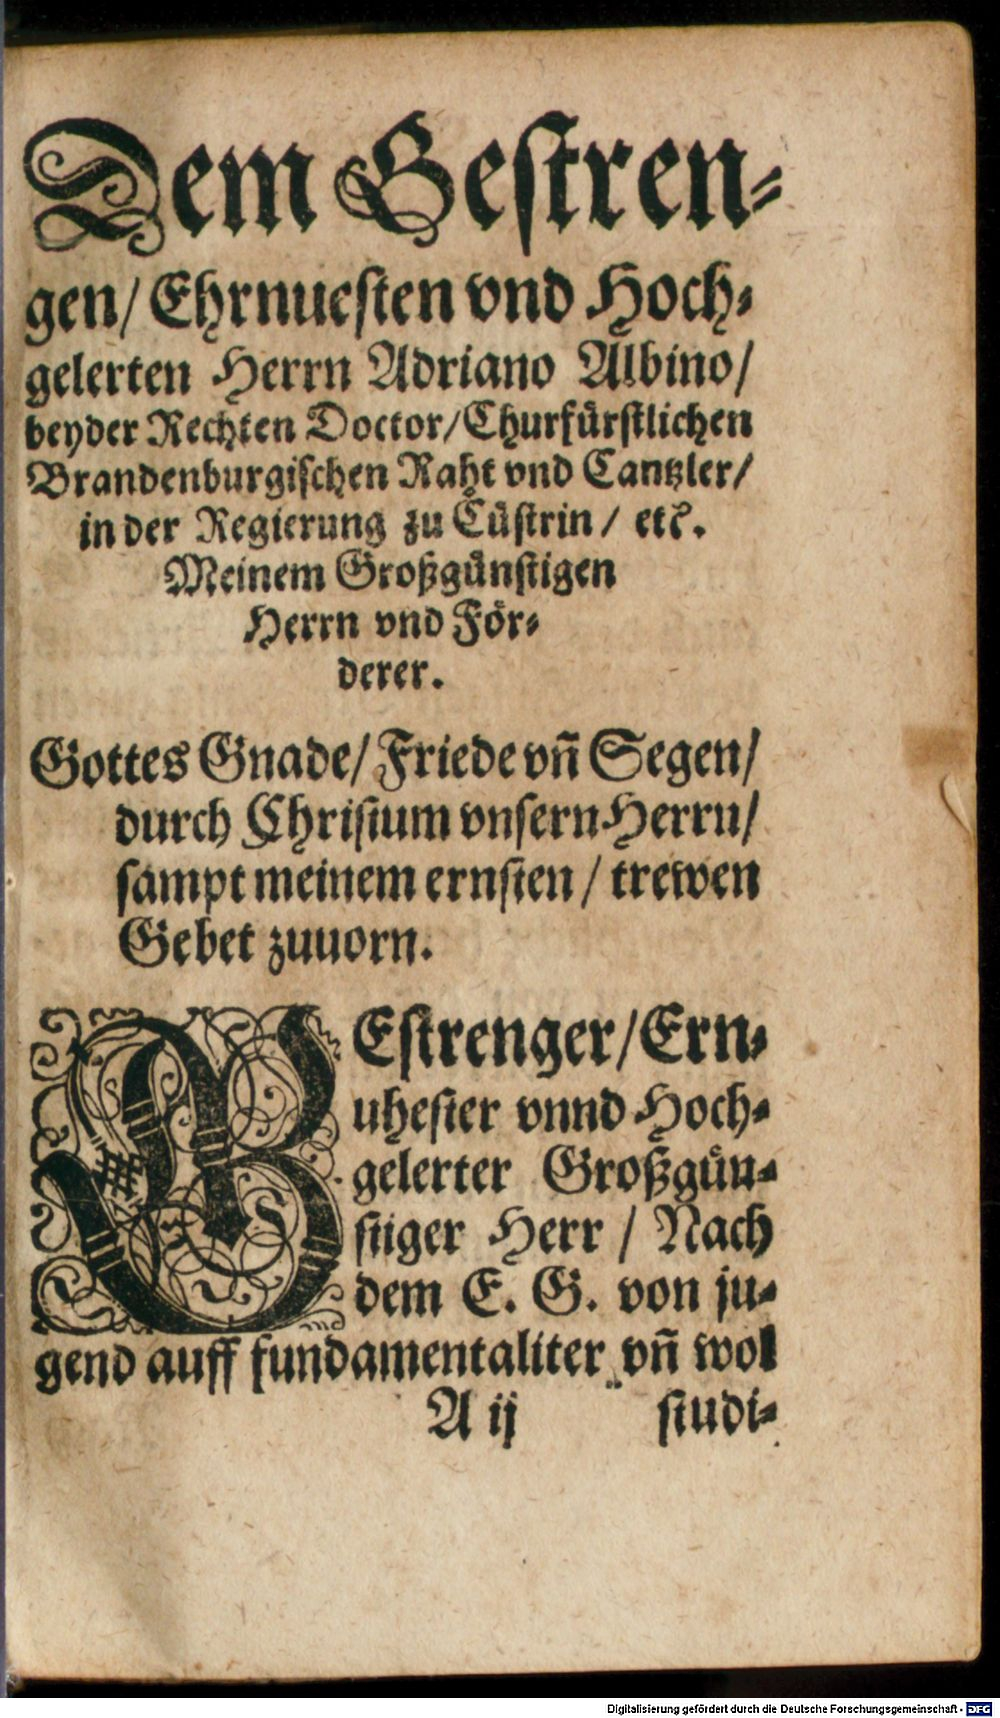 Dem Gestren-
gen/ Ehrnuesten vnd Hoch-
gelerten Herrn Adriano Albino/
beyder Rechten Doctor/ Churfürstlichen
Brandenburgischen Raht vnd Cantzler/
in der Regierung zu Cüstrin/ etc.
Meinem Großgünstigen
Herrn vnd För-
derer.
Gottes Gnade/ Friede vñ Segen/
durch Christum vnsern Herrn/
sampt meinem ernsten/ trewen
Gebet zuuorn.
GEstrenger/ Ern-
uhester vnnd Hoch-
gelerter Großgün-
stiger Herr/ Nach
dem E. G. von ju-
gend auff fundamentaliter vñ wol
A ij studi-
Digitalisierung gefördert durch die Deutsche Forschungsgemeinschaft - DFG